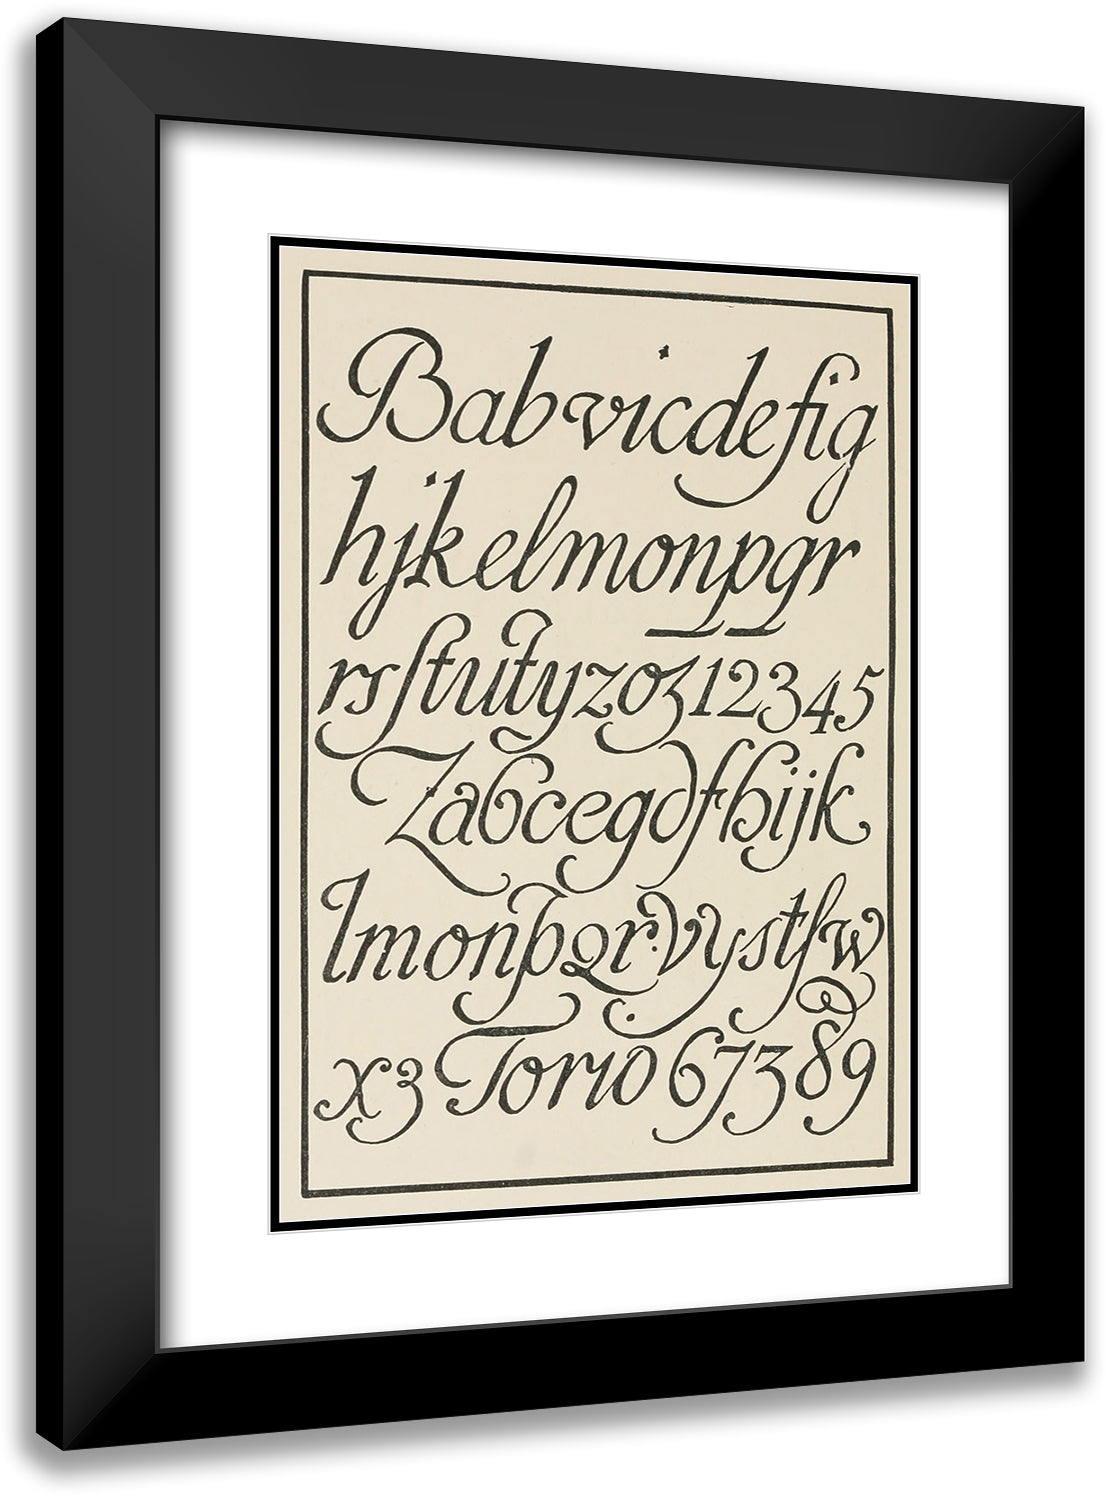 Babvicdefig
hjkelmonpqr
rsſtutyyzoz12345
Zabcegdfhijk
lmonpqr.vystſw
xz Torio 67389